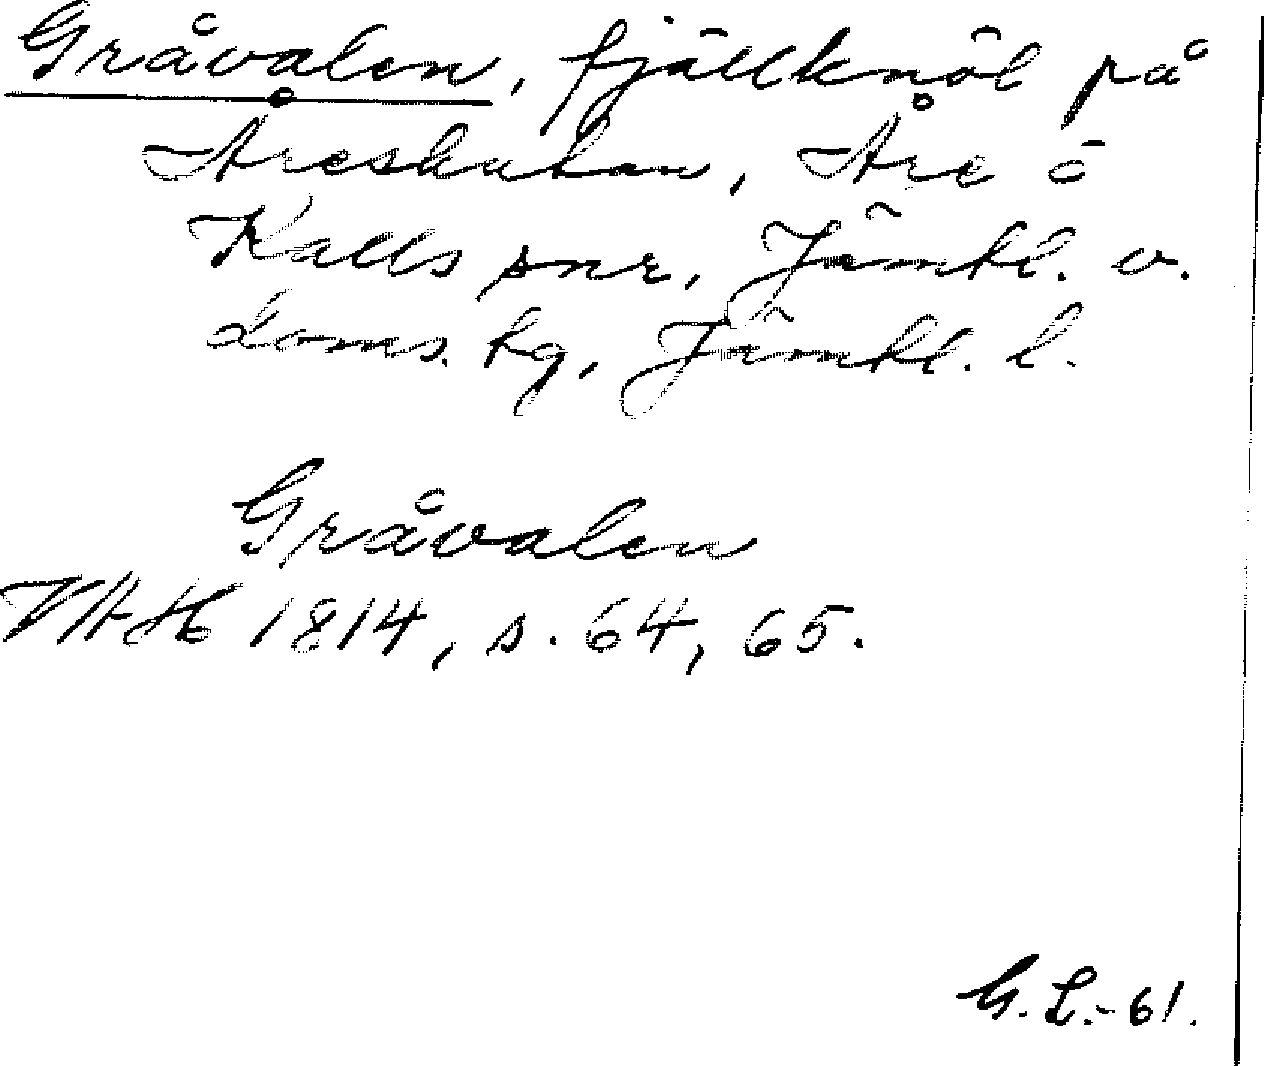 Gråvalen, fjällknöl på
Åreskutan, Åre o
Kalls snr, Jämtl. v.
doms. tg, Jämtl. l.
Gråvalen
VAH 1814, s. 64, 65.
G. L.-61.